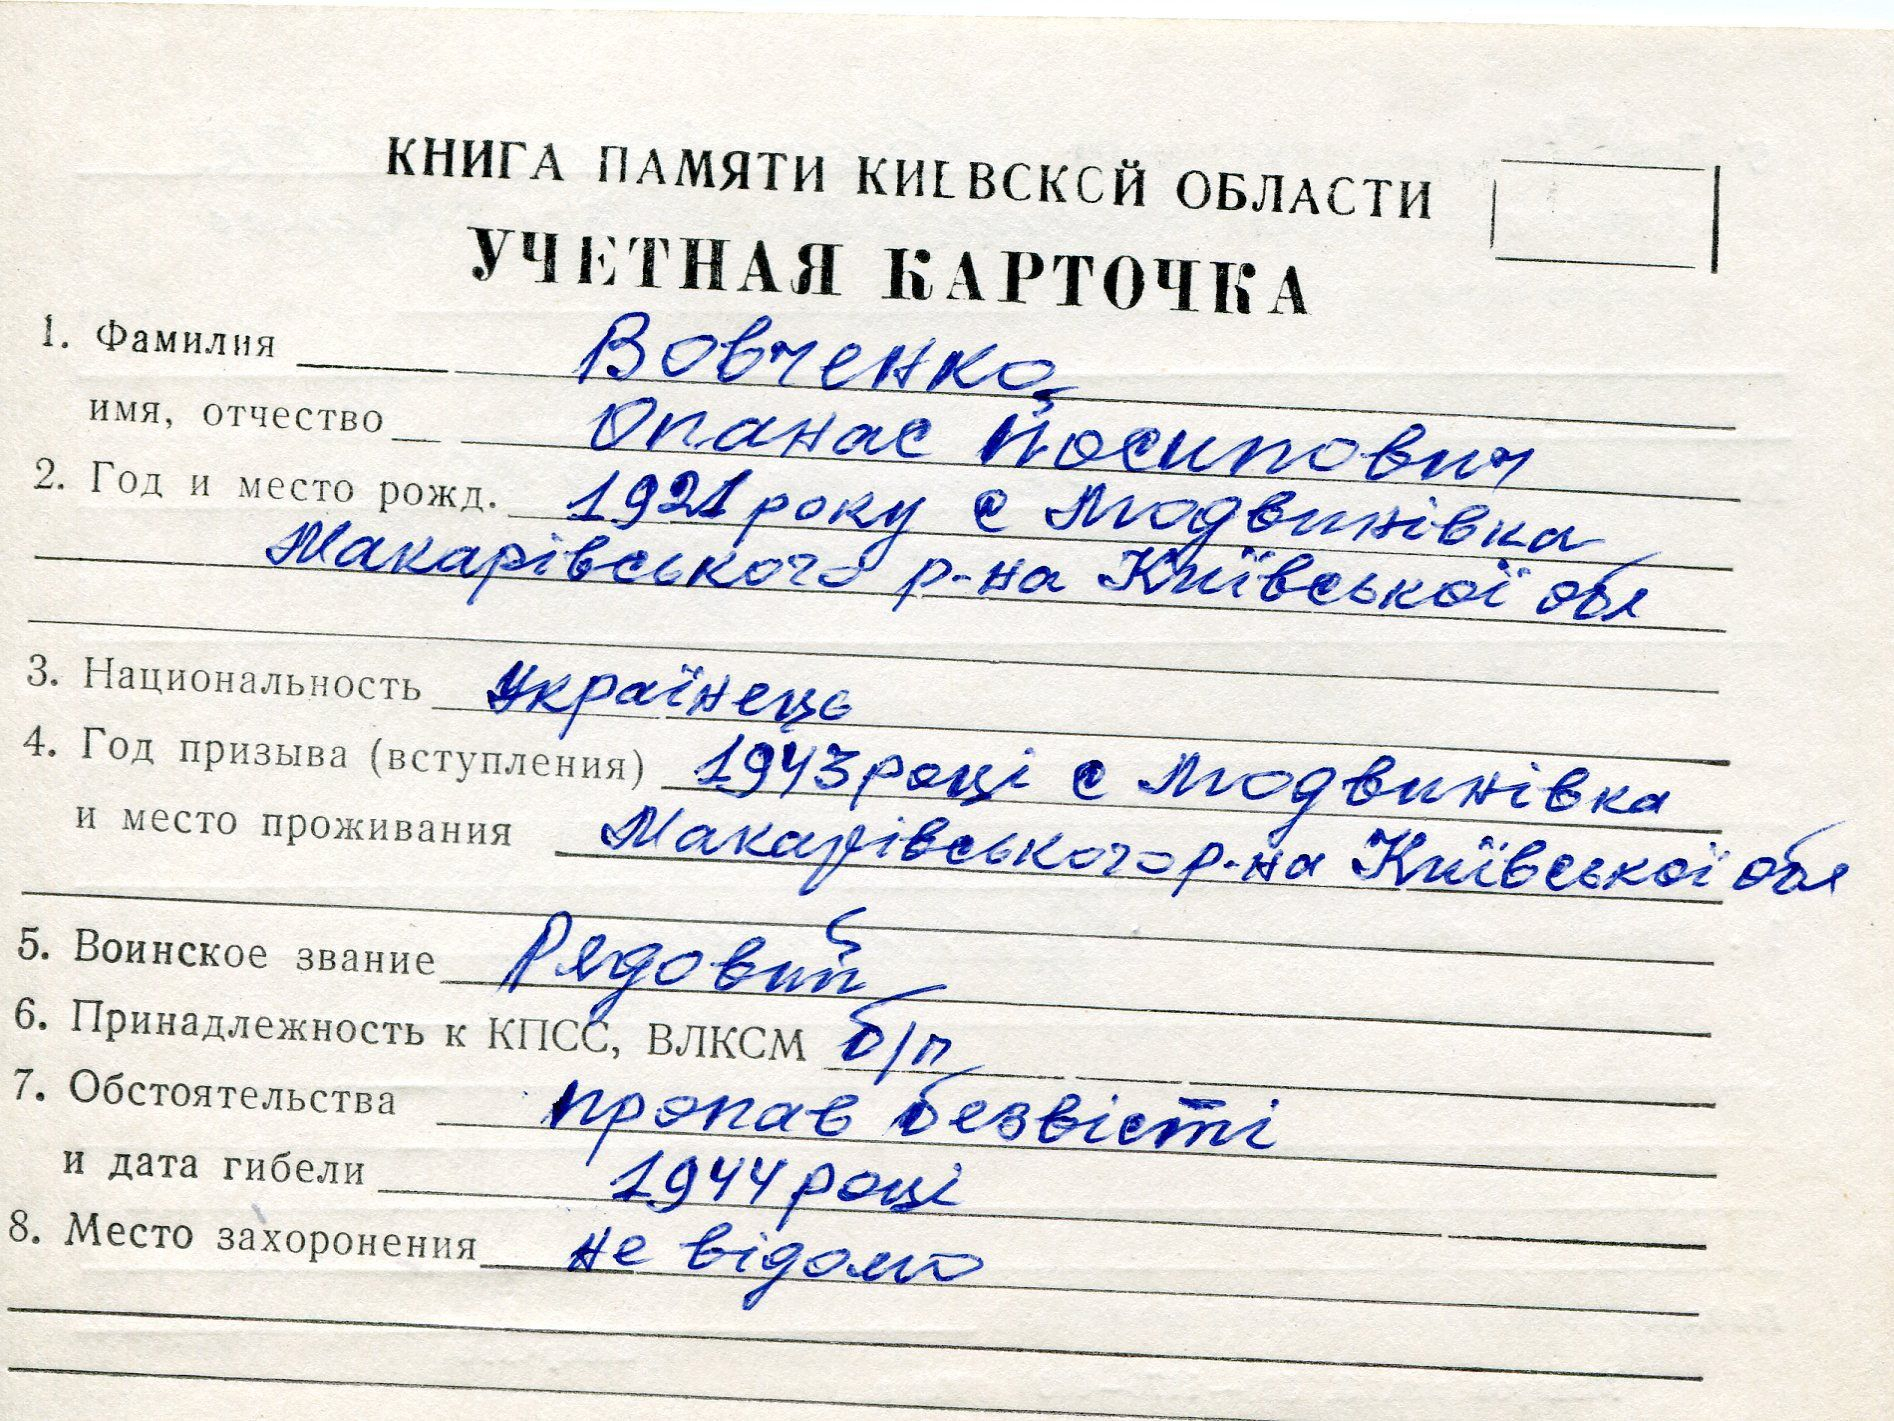 КНИГА ПАМЯТИ КИЕВСКОЙ ОБЛАСТИ
УЧЕТНАЯ КАРТОЧКА
1. Фамилия Вовченко
имя, отчество Опанас Йосипович
2. Год и место рожд. 1921 року с Модвинівка
Макарівського р-на Київської обл
3. Национальность Українець
4. Год призыва (вступления) 1943 році с Модвинівка
и место проживания Макарівського р-на Київської обл
5. Воинское звание Рядовий
6. Принадлежность к КПСС, ВЛКСМ б/п
7. Обстоятельства пропав безвісті
и дата гибели 1944 році
8. Место захоронения не відомо